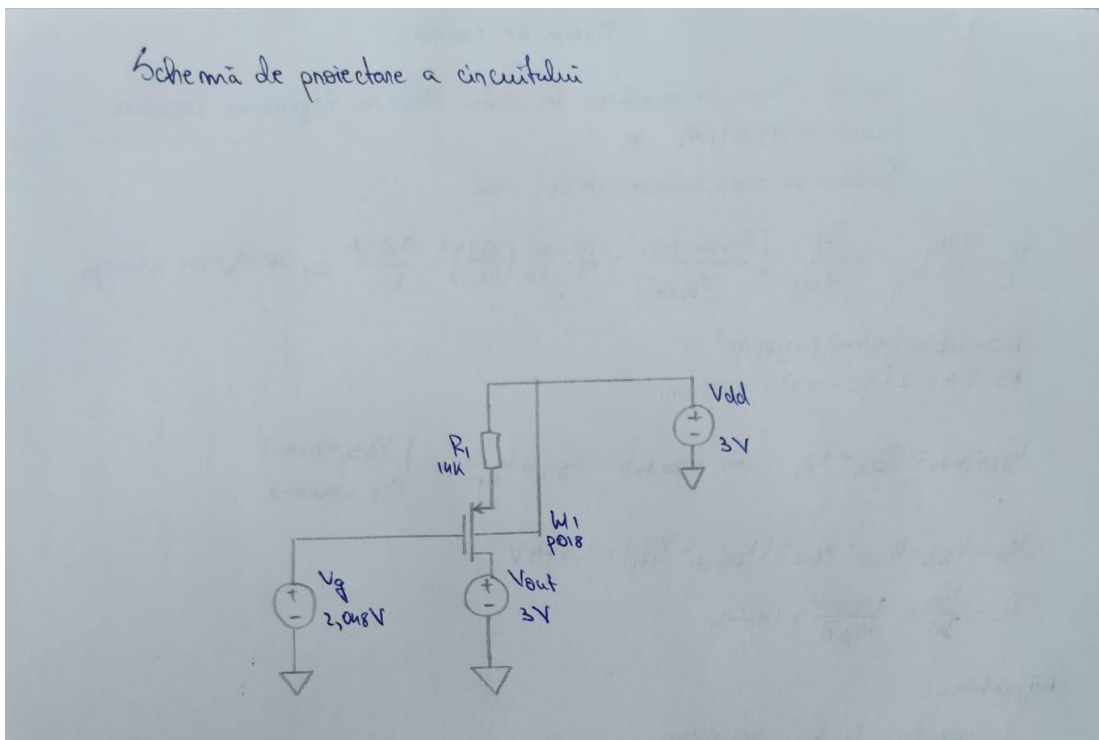 Schemă de proiectare a circuitului
Vdd
+
-
3V
R1
14K
M1
p018
Vg
+
-
2,048V
Vout
+
-
3V